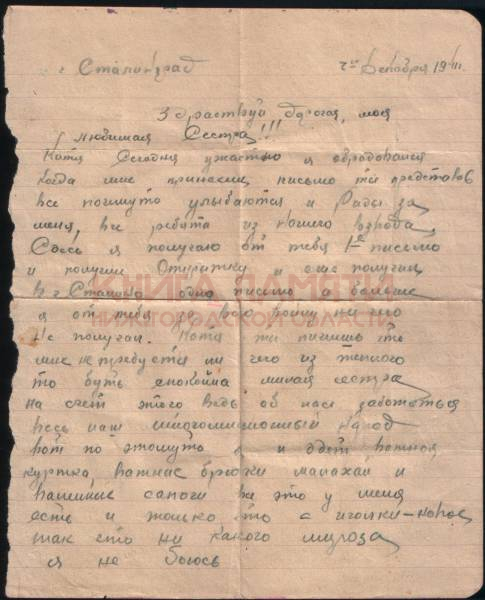 г Сталинград 2го Декабря 19
Здраствуй дорогая, моя
любимая Сестра!!!
Катя Сегодня ужастно я обродовался
когда мне принесли письмо ты представ
все почимуто улыбаются и Рады за
меня, все ребята из нашего взвода,
Сдесь я получаю от тебя 1-е письмо
и получил Открытку и еще получил
в г Сталино одно письмо и больше
я от тебя за всю войну ни чего
не получал. Катя ты пишишь что
мне не требуется ли чего из теплого
то будь спокойна милая сестра
на счет этого ведь об нас заботеться
весь наш многомилионный народ
вот по этомуто я и одет ватная
куртка, ватние брюки малахай и
сапоги все это у меня
есть и только что с иголки-новое
так что ни какого мороза
я не боюсь
КНИГА ПАМЯТИ
НИЖЕГОРОДСКОЙ ОБЛАСТИ